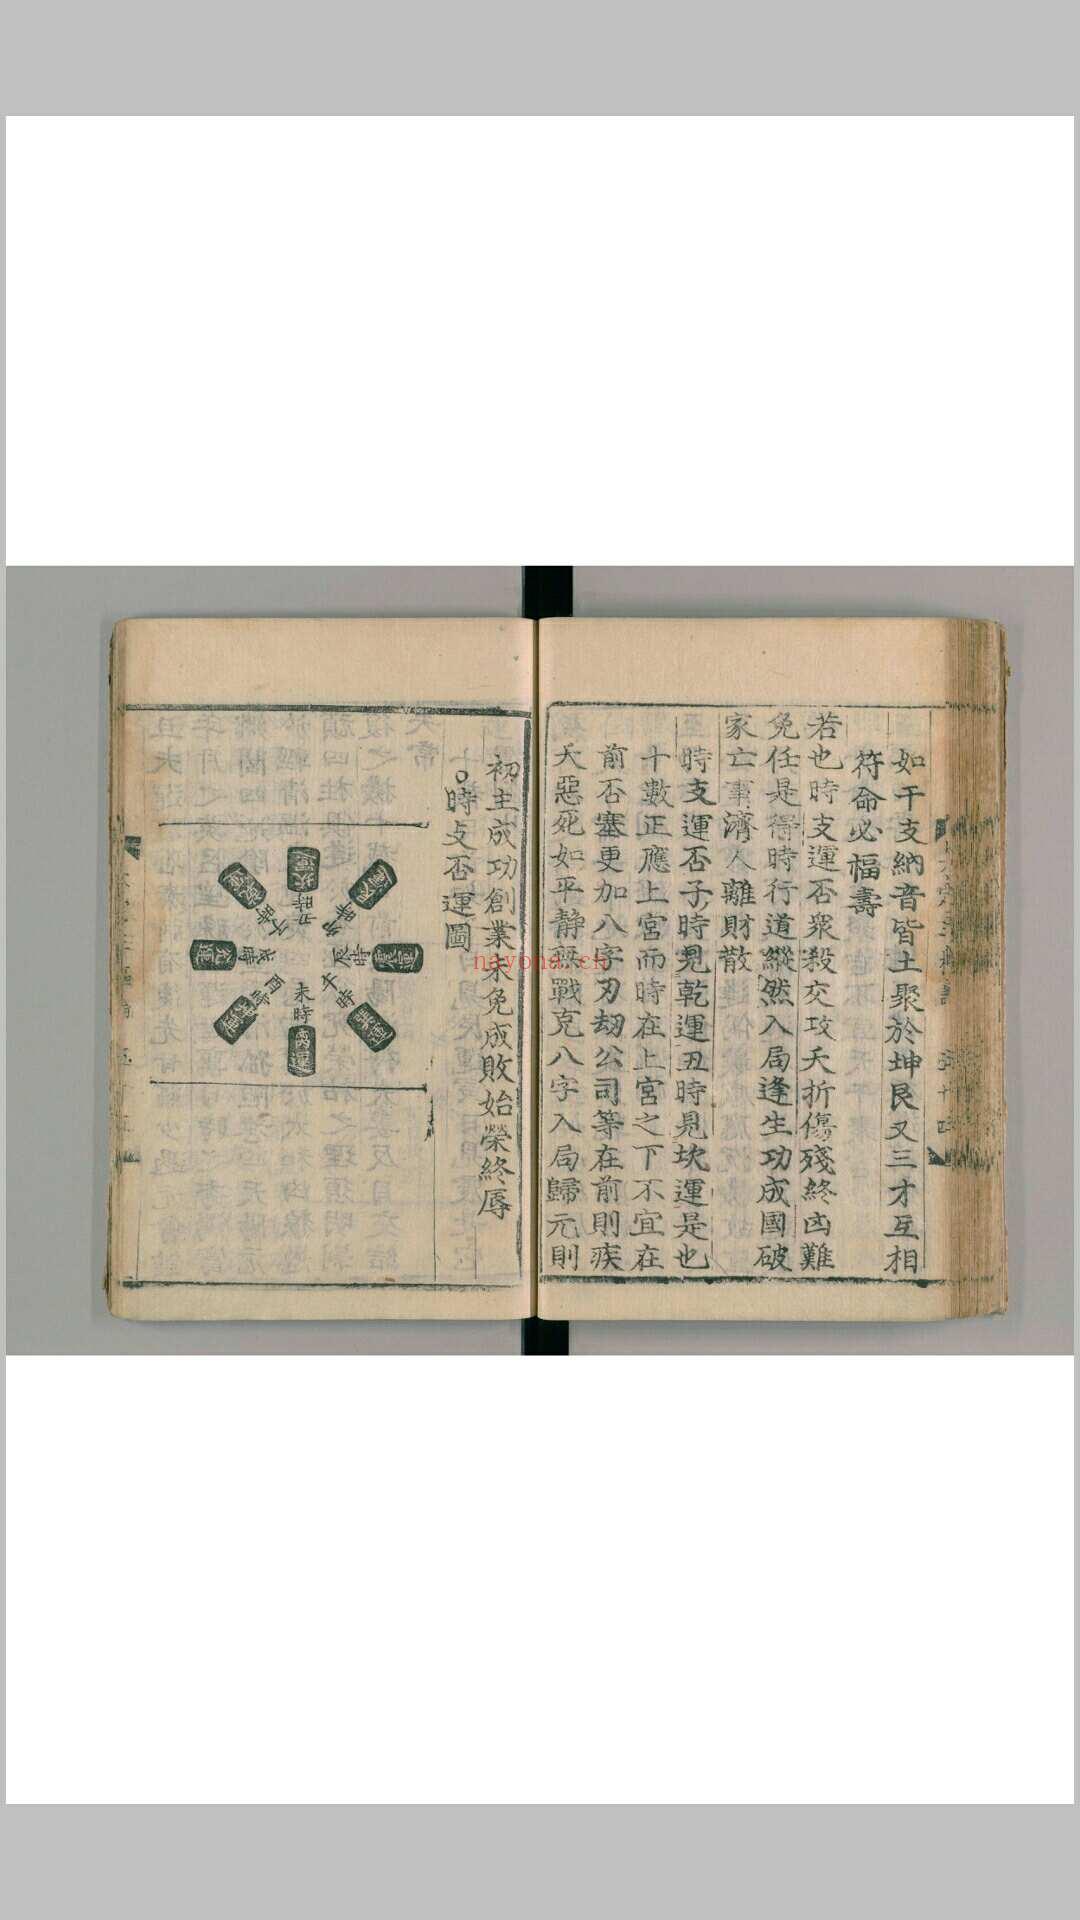 如干支納音皆土聚於坤艮又三才互相
符命必福壽
若也時支運否衆殺交攻夭折傷殘終凶難
免任是得時行道縱然入局逢生功成國破
家亡事濟人離財散
時支運否子時見乾運丑時見坎運是也
十數正應上宮而時在上宮之下不宜在
前否塞更加八字刃劫公司等在前則疾
夭惡死如平静無戰克八字入局歸元則
初主成功創業未免成敗始榮終辱
○時支否運圖
坎運
丑時
辰時
午時
巽運
未時
离運
酉時
戌時
nayona.cn